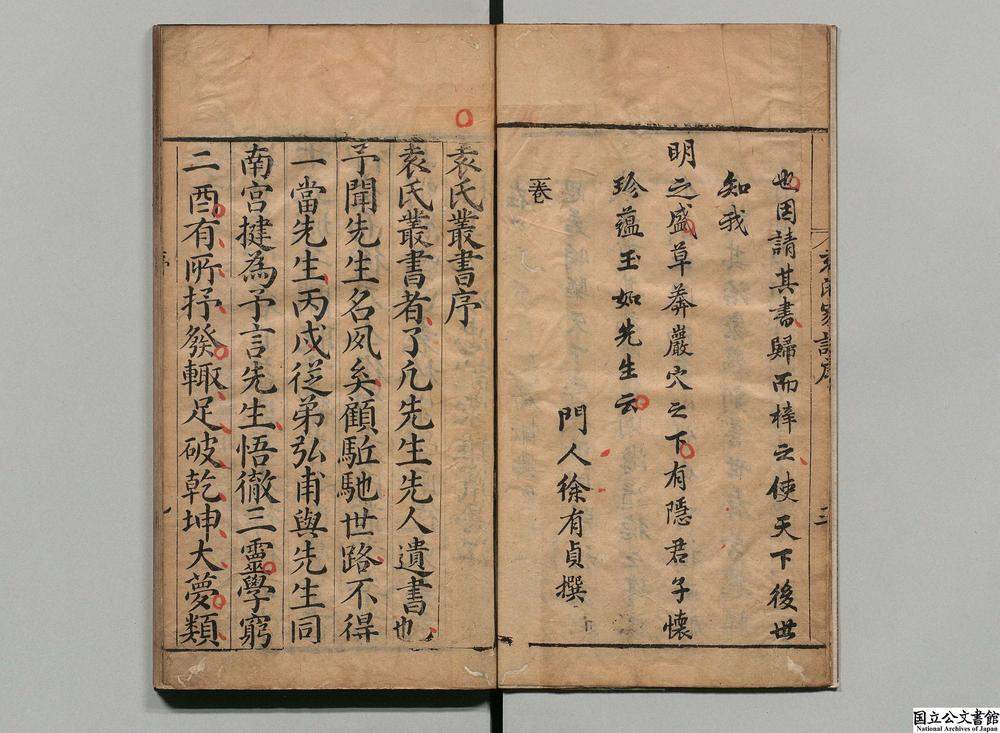 也因請其書歸而梓之使天下後世
知我
明之盛草莽巖穴之下有隱君子懷
珍蘊玉如先生云
門人徐有貞撰
卷
袁氏叢書序
袁氏叢書者了凡先生先人遺書也
予聞先生名夙矣顧駈馳世路不得
一當先生丙戍従弟弘甫與先生同
南宮揵為予言先生悟徹三靈學窮
二酉有所抒發輙足破乾坤大夢類
国立公文書館
National Archives of Japan